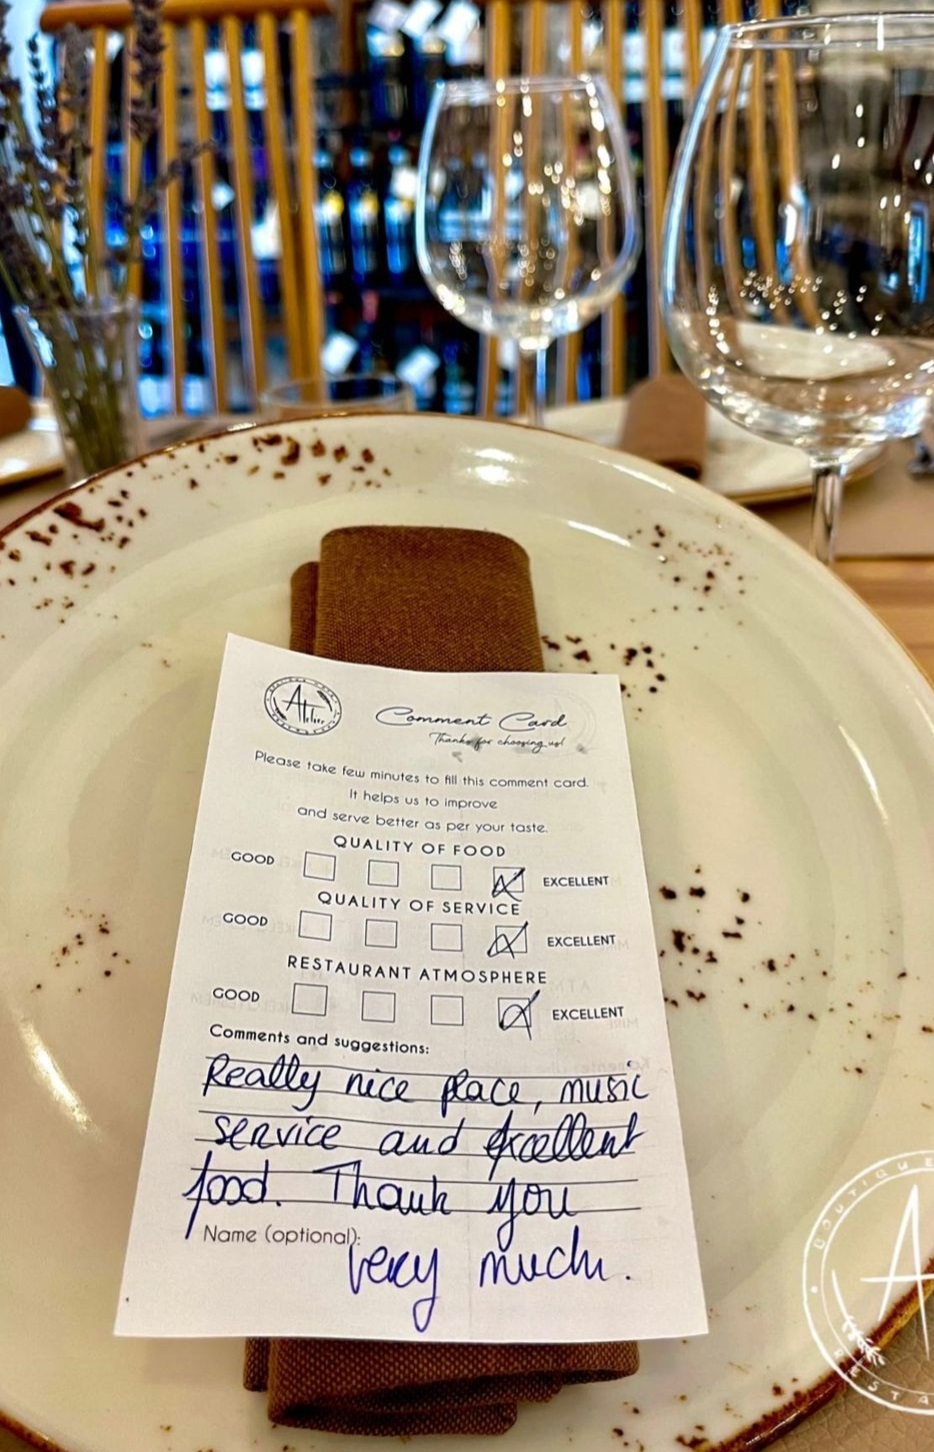 Atelier
Comment Card
Thanks for choosing us!
Please take few minutes to fill this comment card.
It helps us to improve
and serve better as per your taste.
QUALITY OF FOOD
GOOD EXCELLENT
QUALITY OF SERVICE
GOOD EXCELLENT
RESTAURANT ATMOSPHERE
GOOD EXCELLENT
Comments and suggestions:
Really nice place, music
service and excellent
food. Thank you
Name (optional):
very much.
BOUTIQUE
A
RESTA